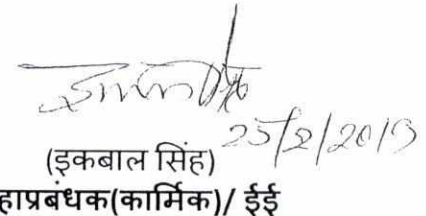 25/2/2019
(इकबाल सिंह)
हाप्रबंधक(कार्मिक)/ ईई